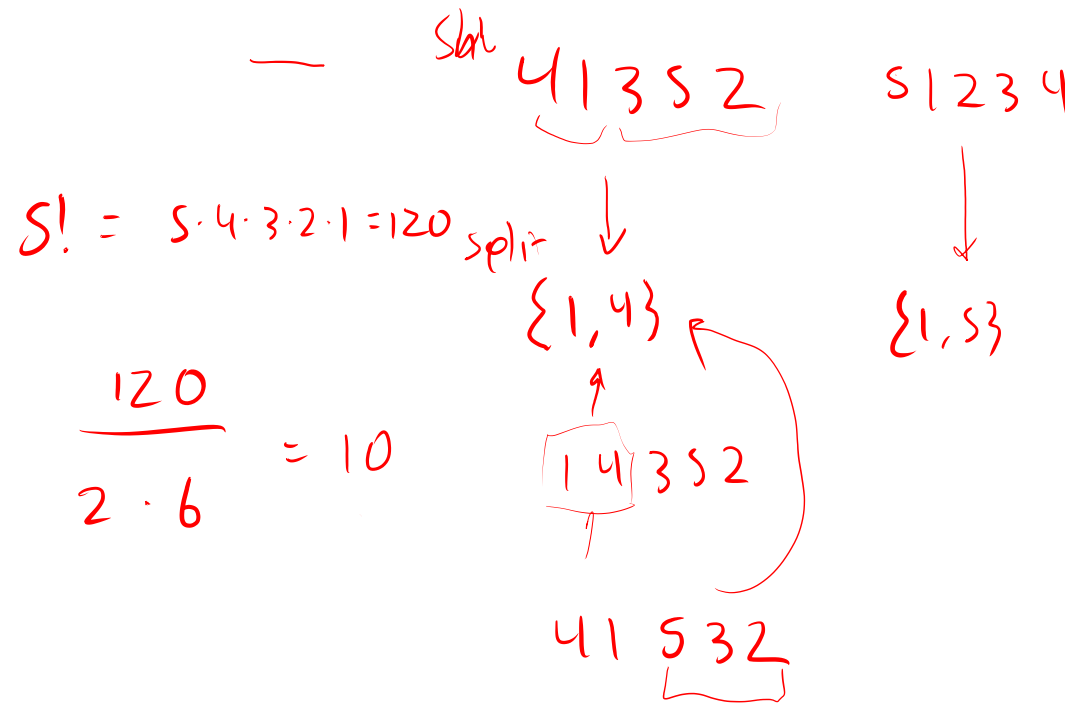 41352
51234
5! = 5·4·3·2·1=120
split
{1,4}
{1,5}
120
2 · 6
= 10
14352
41 532